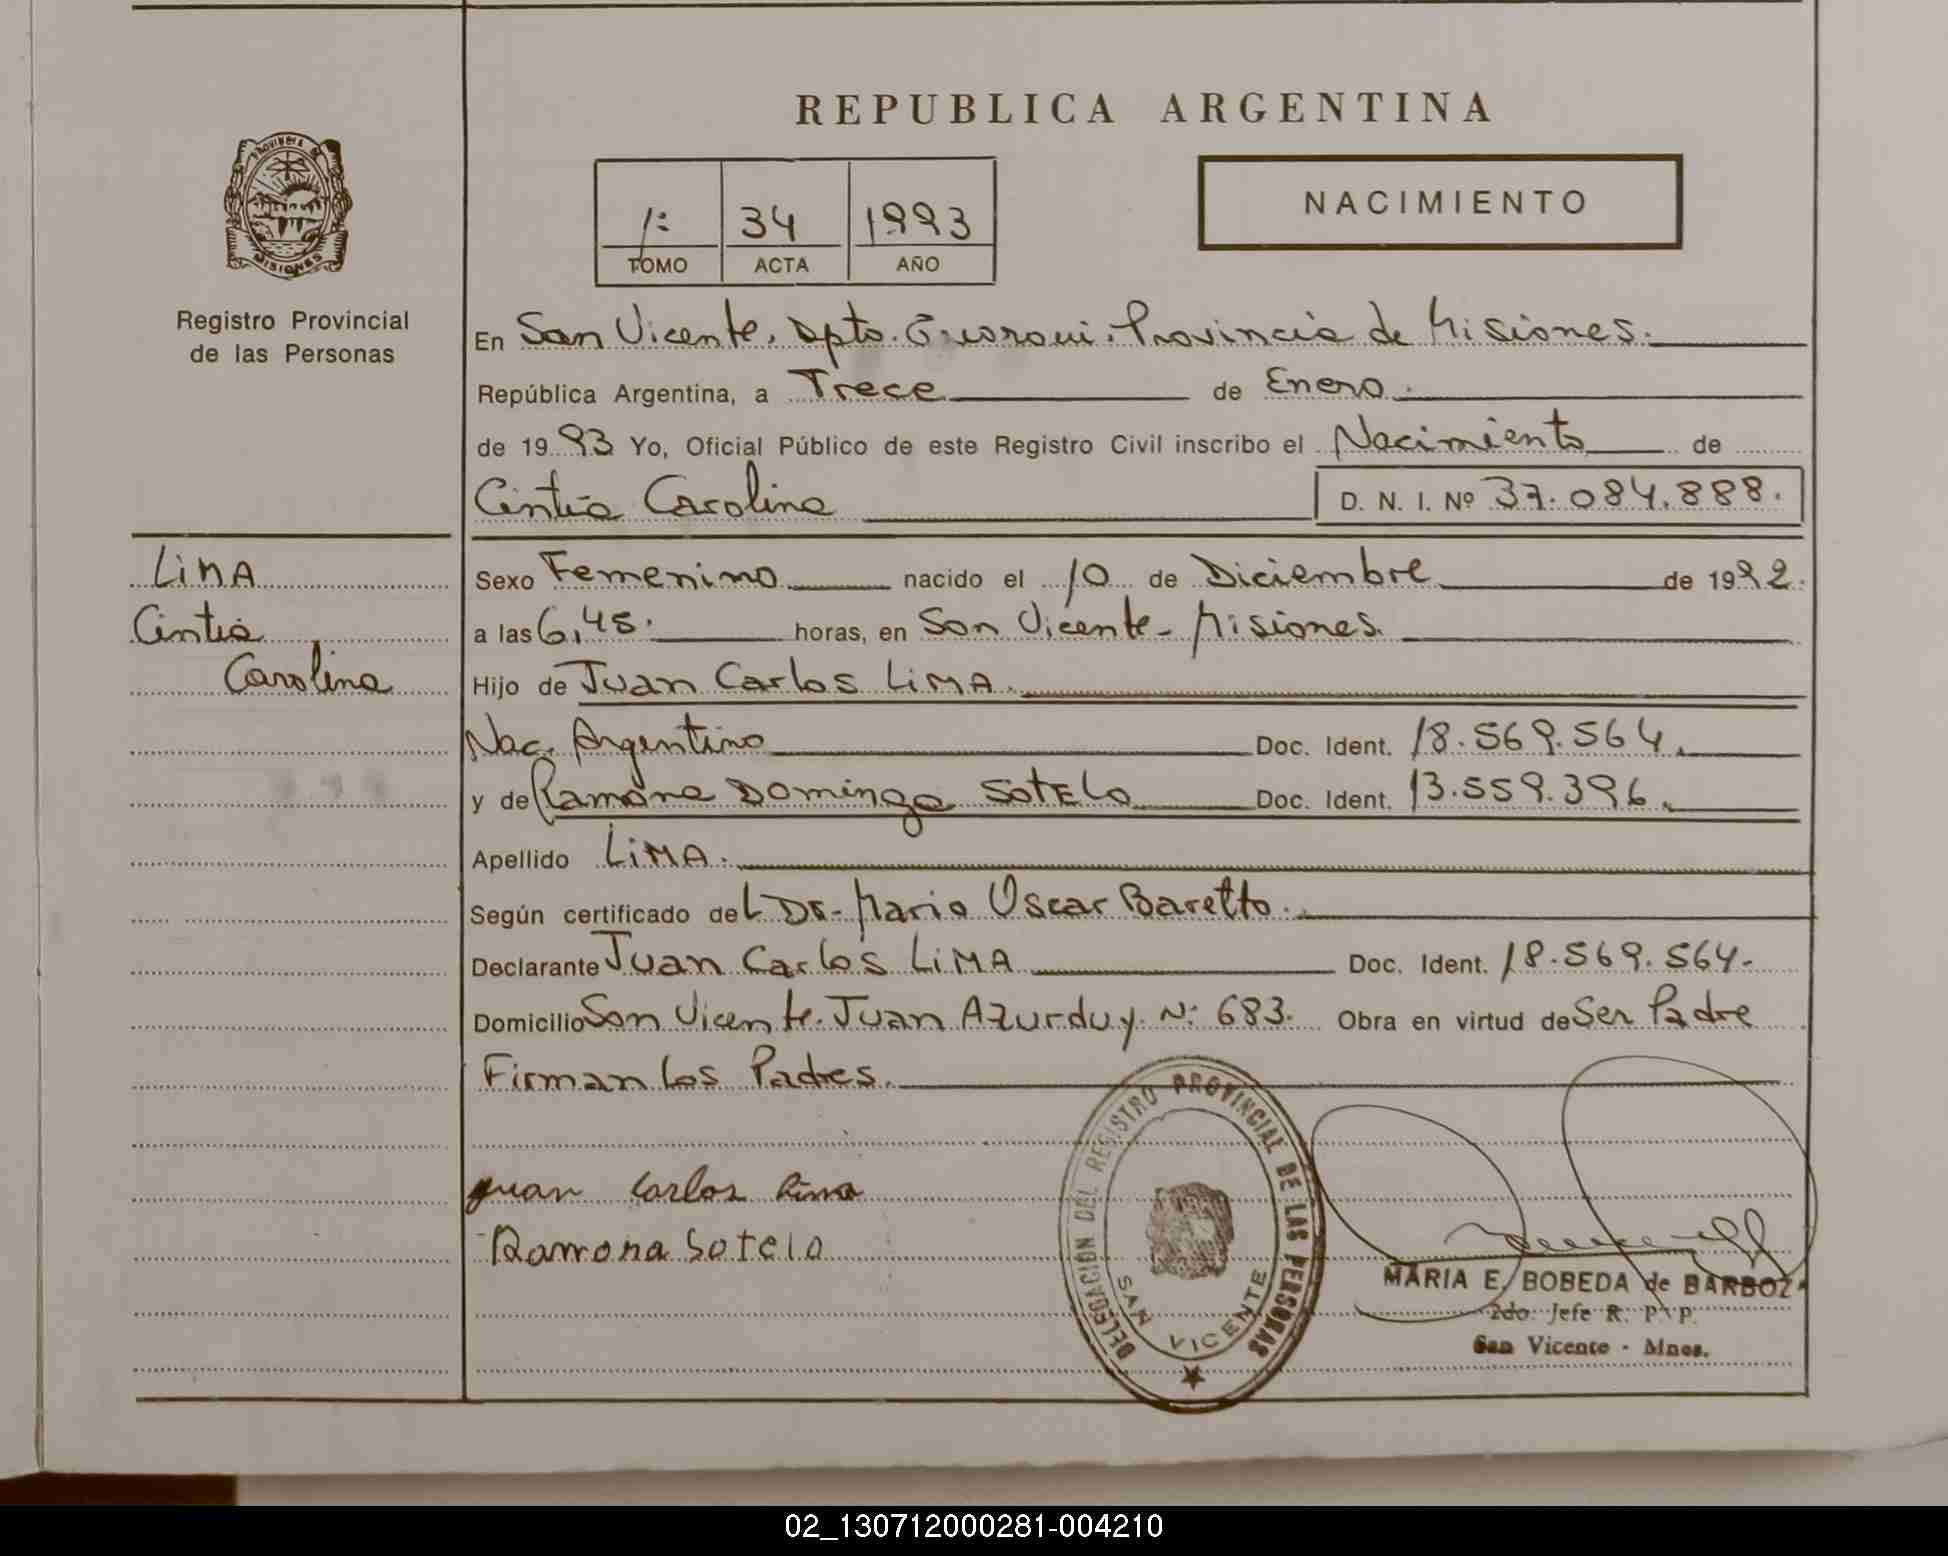 REPUBLICA ARGENTINA
PROVINCIA DE MISIONES
Registro Provincial
de las Personas
1: 34 1993
TOMO ACTA AÑO
NACIMIENTO
En San Vicente, Dpto. Guaraní. Provincia de Misiones.
República Argentina, a Trece de Enero.
de 1993 Yo, Oficial Público de este Registro Civil inscribo el Nacimiento de
Cintia Carolina D. N. I. Nº 37.084.888.
LiMA
Cintia
Carolina
Sexo Femenino nacido el 10 de Diciembre de 1992.
a las 6,45. horas, en San Vicente - Misiones.
Hijo de Juan Carlos LiMA.
Nac. Argentino Doc. Ident. 18.569.564.
y de Ramona Dominga Sotelo Doc. Ident. 13.559.396.
Apellido LiMA.
Según certificado del Dr. Mario Oscar Baretto.
Declarante Juan Carlos LiMA Doc. Ident. 18.569.564.
Domicilio San Vicente. Juan Azurduy. N: 683. Obra en virtud de Ser Padre
Firman los Padres.
Juan Carlos Lima
Ramona Sotelo
DELEGACIÓN DEL REGISTRO PROVINCIAL DE LAS PERSONAS
SAN VICENTE
MARIA E. BOBEDA de BARBOZA
2do. Jefe R. P. P.
San Vicente - Mnes.
02_130712000281-004210